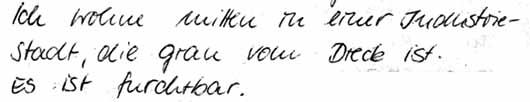 Ich wohne mitten in einer Industrie-
Stadt, die grau vom Dreck ist.
Es ist furchtbar.